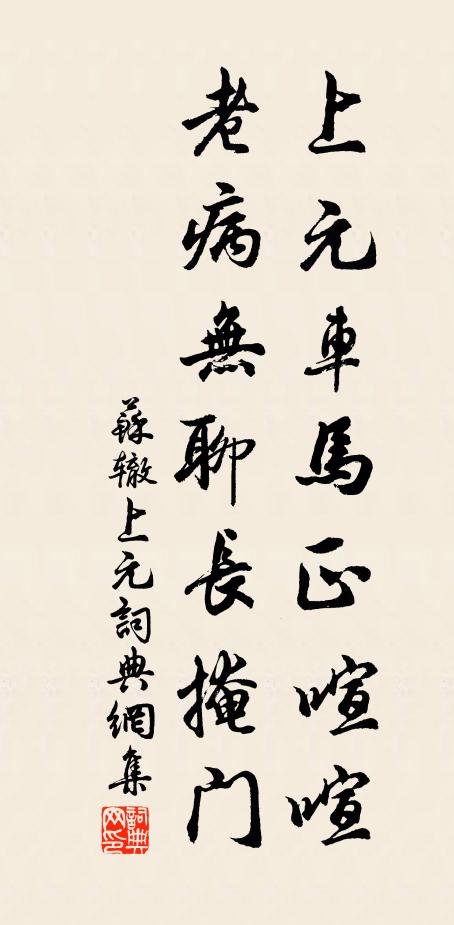 上元車馬正喧喧
老病無聊長掩門
蘇辙上元詞典網集
詞典
网印